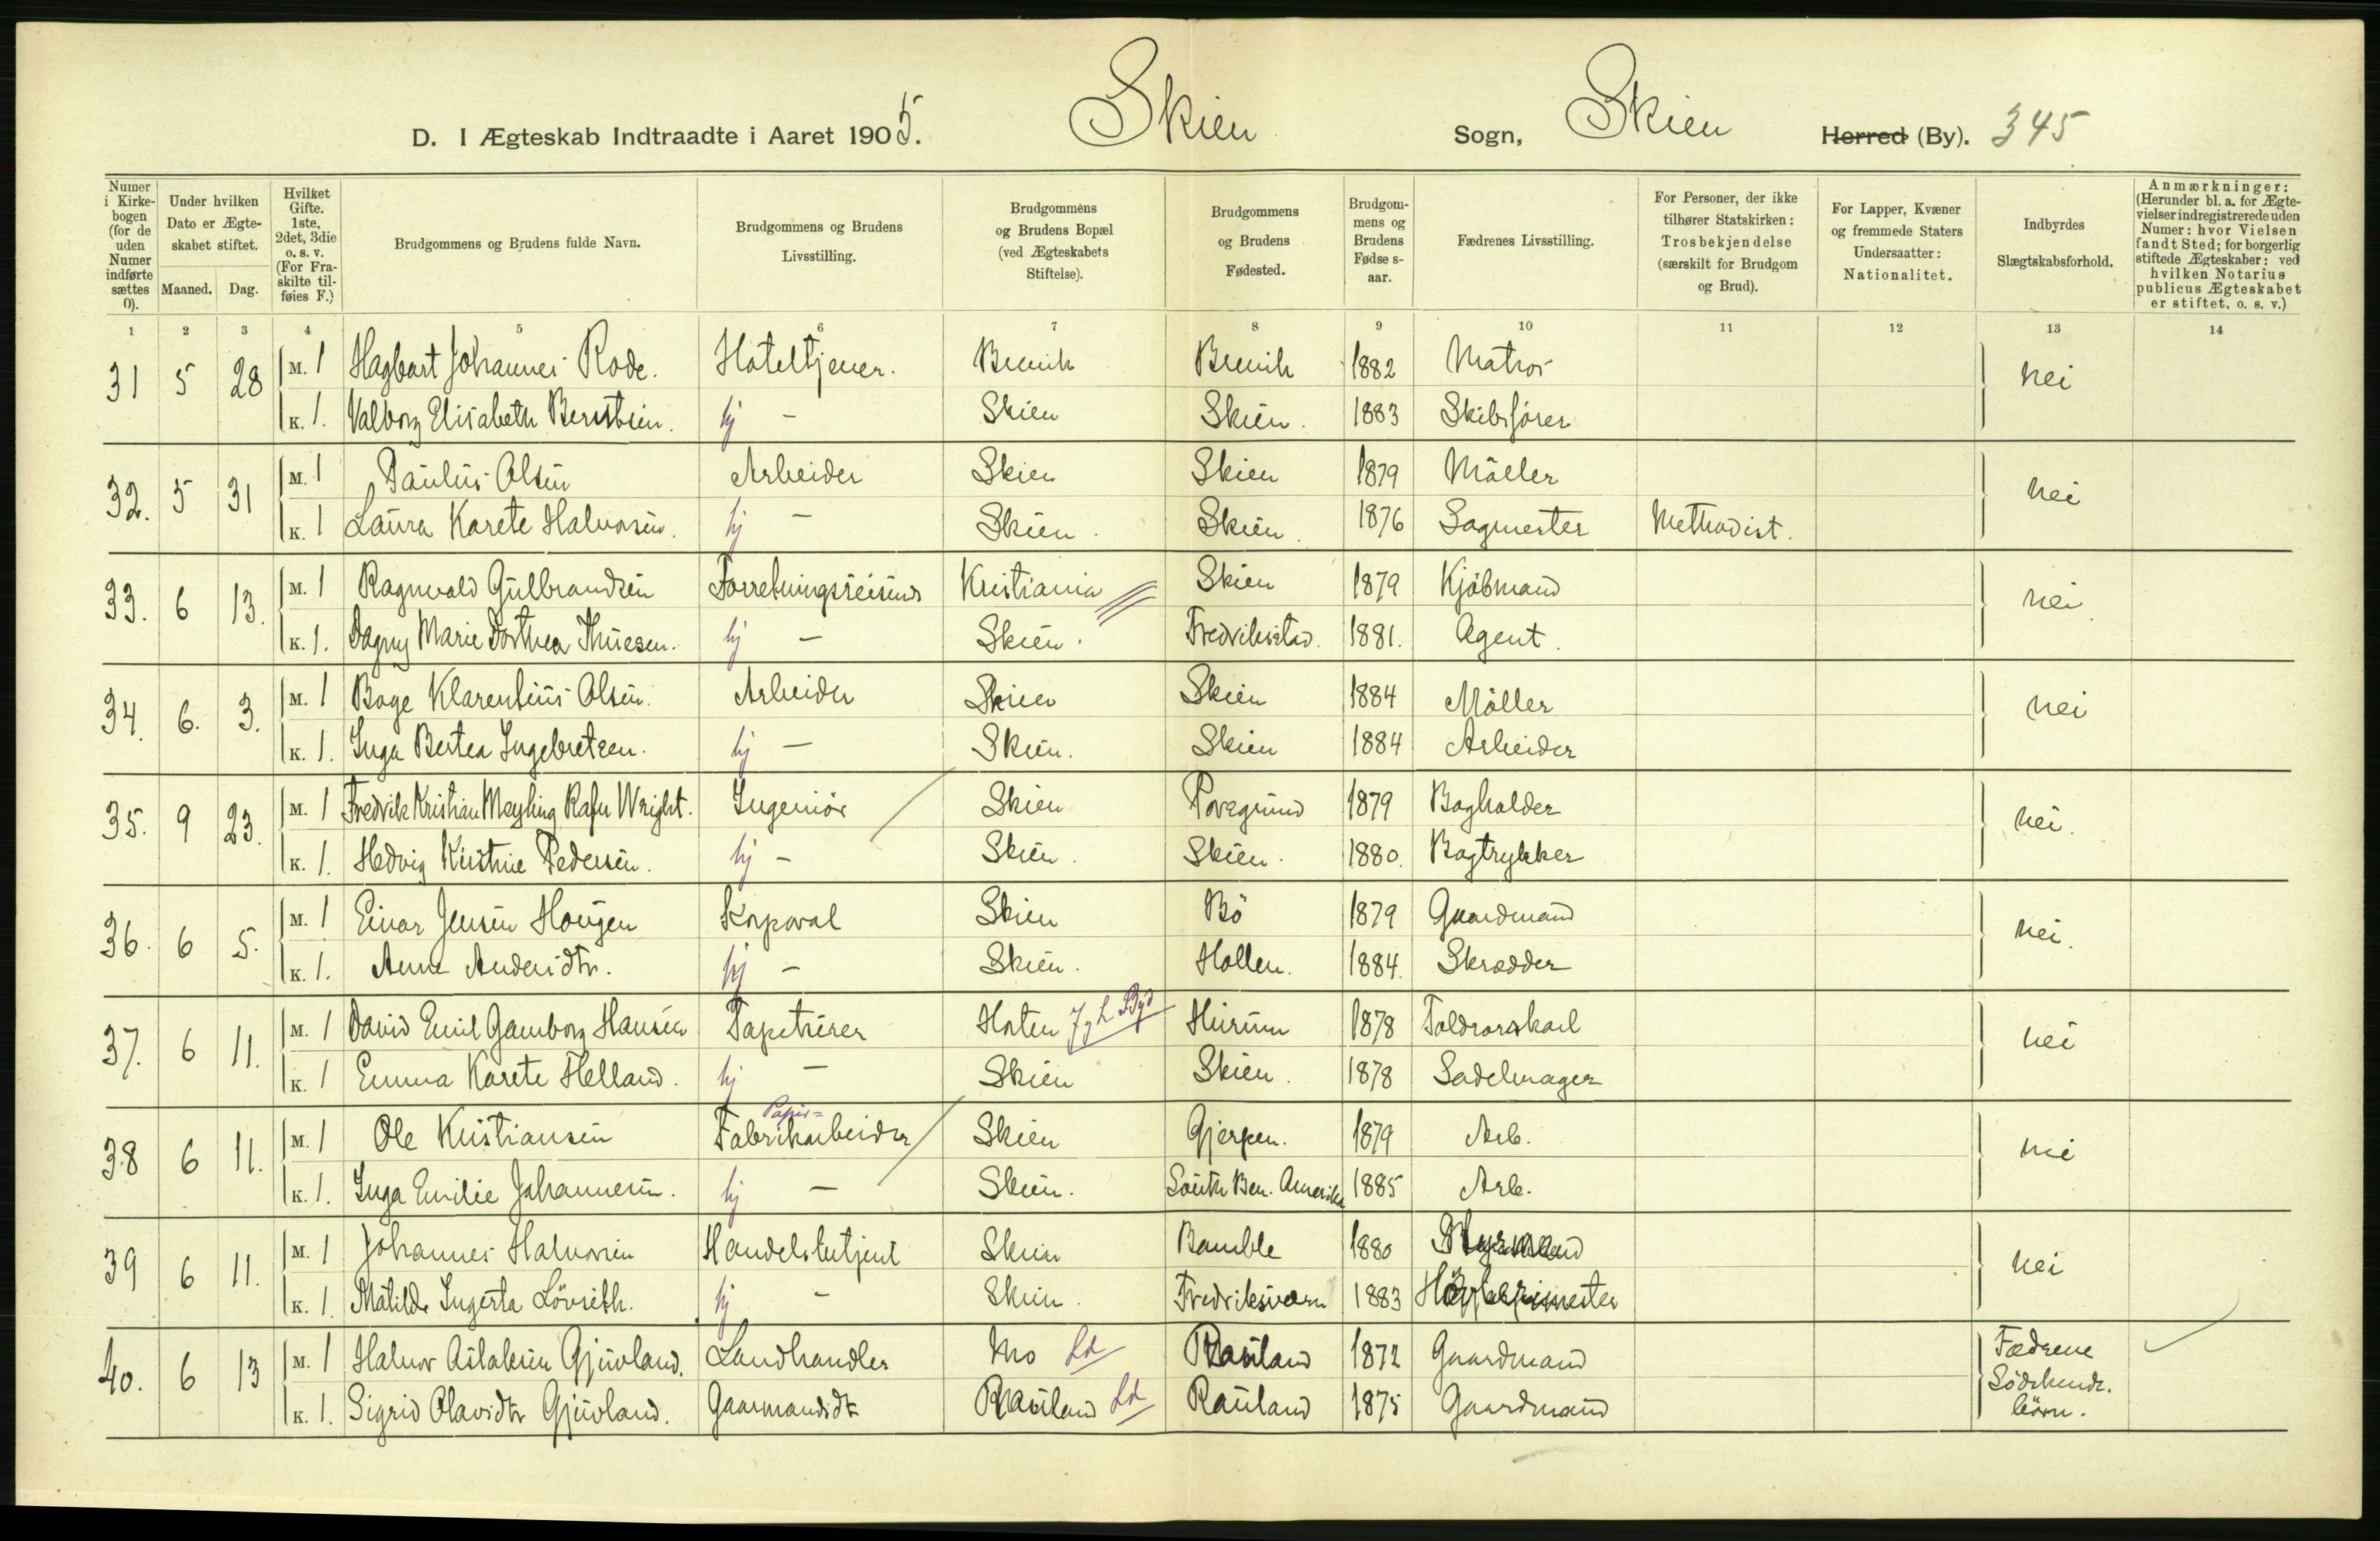 D. I Ægteskab Indtraadte i Aaret 1905. Skien Sogn, Skien Herred (By). 345
Numer i Kirkebogen (for de uden Numer indførte sættes 0).
Under hvilken Dato er Ægteskabet stiftet.
Maaned. Dag.
Hvilket Gifte. 1ste, 2det, 3die o. s. v. (For Fraskilte tilføies F.)
Brudgommens og Brudens fulde Navn.
Brudgommens og Brudens Livsstilling.
Brudgommens og Brudens Bopæl (ved Ægteskabets Stiftelse).
Brudgommens og Brudens Fødested.
Brudgommens og Brudens Fødse s-aar.
Fædrenes Livsstilling.
For Personer, der ikke tilhører Statskirken: Trosbekjendelse (særskilt for Brudgom og Brud).
For Lapper, Kvæner og fremmede Staters Undersaatter: Nationalitet.
Indbyrdes Slægtskabsforhold.
Anmærkninger: (Herunder bl. a. for Ægtevielser indregistrerede uden Numer: hvor Vielsen fandt Sted; for borgerlig stiftede Ægteskaber: ved hvilken Notarius publicus Ægteskabet er stiftet, o. s. v.)
1 2 3 4 5 6 7 8 9 10 11 12 13 14
31 5 28 M. 1 Hagbart Johannes Rode. Hoteltjener. Brevik Brevik 1882 Matros nei
K. 1. Valborg Elisabeth Berntsen. hj - Skien Skien. 1883 Skibsfører
32. 5 31 M. 1 Paulus Olsen Arbeider Skien Skien 1879 Møller nei
K. 1 Laura Karete Halvorsen. hj - Skien. Skien. 1876 Sagmester Methodist.
33. 6 13. M. 1 Ragnvald Gulbrandsen Forretningsreisende Kristiania Skien 1879 Kjøbmand nei
K. 1. Dagny Marie Dorthea Thuesen. hj - Skien. Fredrikstad. 1881. Agent.
34. 6. 3. M. 1 Boge Klarentius Olsen. Arbeider Skien Skien 1884 Møller nei
K. 1. Inga Bertea Ingebretsen. hj - Skien. Skien 1884 Arbeider
35. 9 23. M. 1 Fredrik Kristian Meyling Rafn Wright. Ingeniør Skien Porsgrund 1879 Bogholder nei.
K. 1. Hedvig Kristine Pedersen. hj - Skien. Skien. 1880. Bogtrykker
36. 6 5. M. 1 Einar Jensen Hougen Korporal Skien Bø 1879 Gaardmand nei.
K. 1. Anne Andersdtr. hj - Skien. Hollen. 1884. Skrædder
37. 6 11. M. 1 David Emil Gamborg Hansen Tapetserer Horten Hurum 1878 Toldrorskarl nei
K. 1 Emma Karete Helland. hj - Skien Skien. 1878 Sadelmager
Papir=
38 6 11. M. 1 Ole Kristiansen Fabrikarbeider Skien Gjerpen. 1879 Arb. nei
K. 1. Inga Emilie Johannesen. hj - Skien. South Ben. Amerika 1885 Arb.
39 6 11. M. 1 Johannes Halvorsen Handelsbetjent Skien Bamble 1880 Styrmand nei
K. 1 Matilde Ingerta Løvseth. hj - Skien. Fredriksværn 1883
40. 6 13 M. 1 Halvor Aslaksen Gjuvland. Landhandler Mo Ld Rauland 1872 Gaardmand Fædrene
K. 1. Sigrid Olavsdtr Gjuvland. Gaarmandsdtr Rauland Ld Rauland 1875 Gaardmand Södskende.
börn.